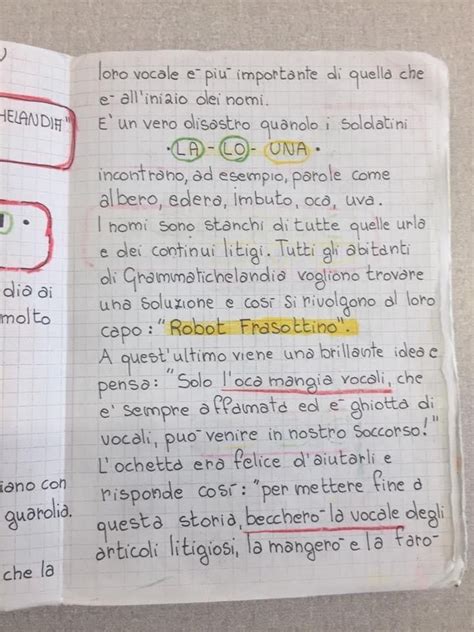 HELANDIA"
dia ai
molto
iano con
guardia.
che la
loro vocale e- piu- importante di quella che
e- all'inizio dei nomi.
E' un vero disastro quando i soldatini
• LA - LO - UNA •
incontrano, ad esempio, parole come
albero, edera, imbuto, oca, uva.
I nomi sono stanchi di tutte quelle urla
e dei continui litigi. Tutti gli abitanti
di Grammatichelandia vogliono trovare
una soluzione e così si rivolgono al loro
capo: "Robot Frasottino".
A quest'ultimo viene una brillante idea e
pensa: "Solo l'oca mangia vocali, che
e' sempre affamata ed e- ghiotta di
vocali, puo- venire in nostro soccorso!"
L'ochetta era felice d'aiutarli e
risponde così: "per mettere fine a
questa storia, bechero- la vocale degli
articoli litigiosi, la mangero- e la faro-